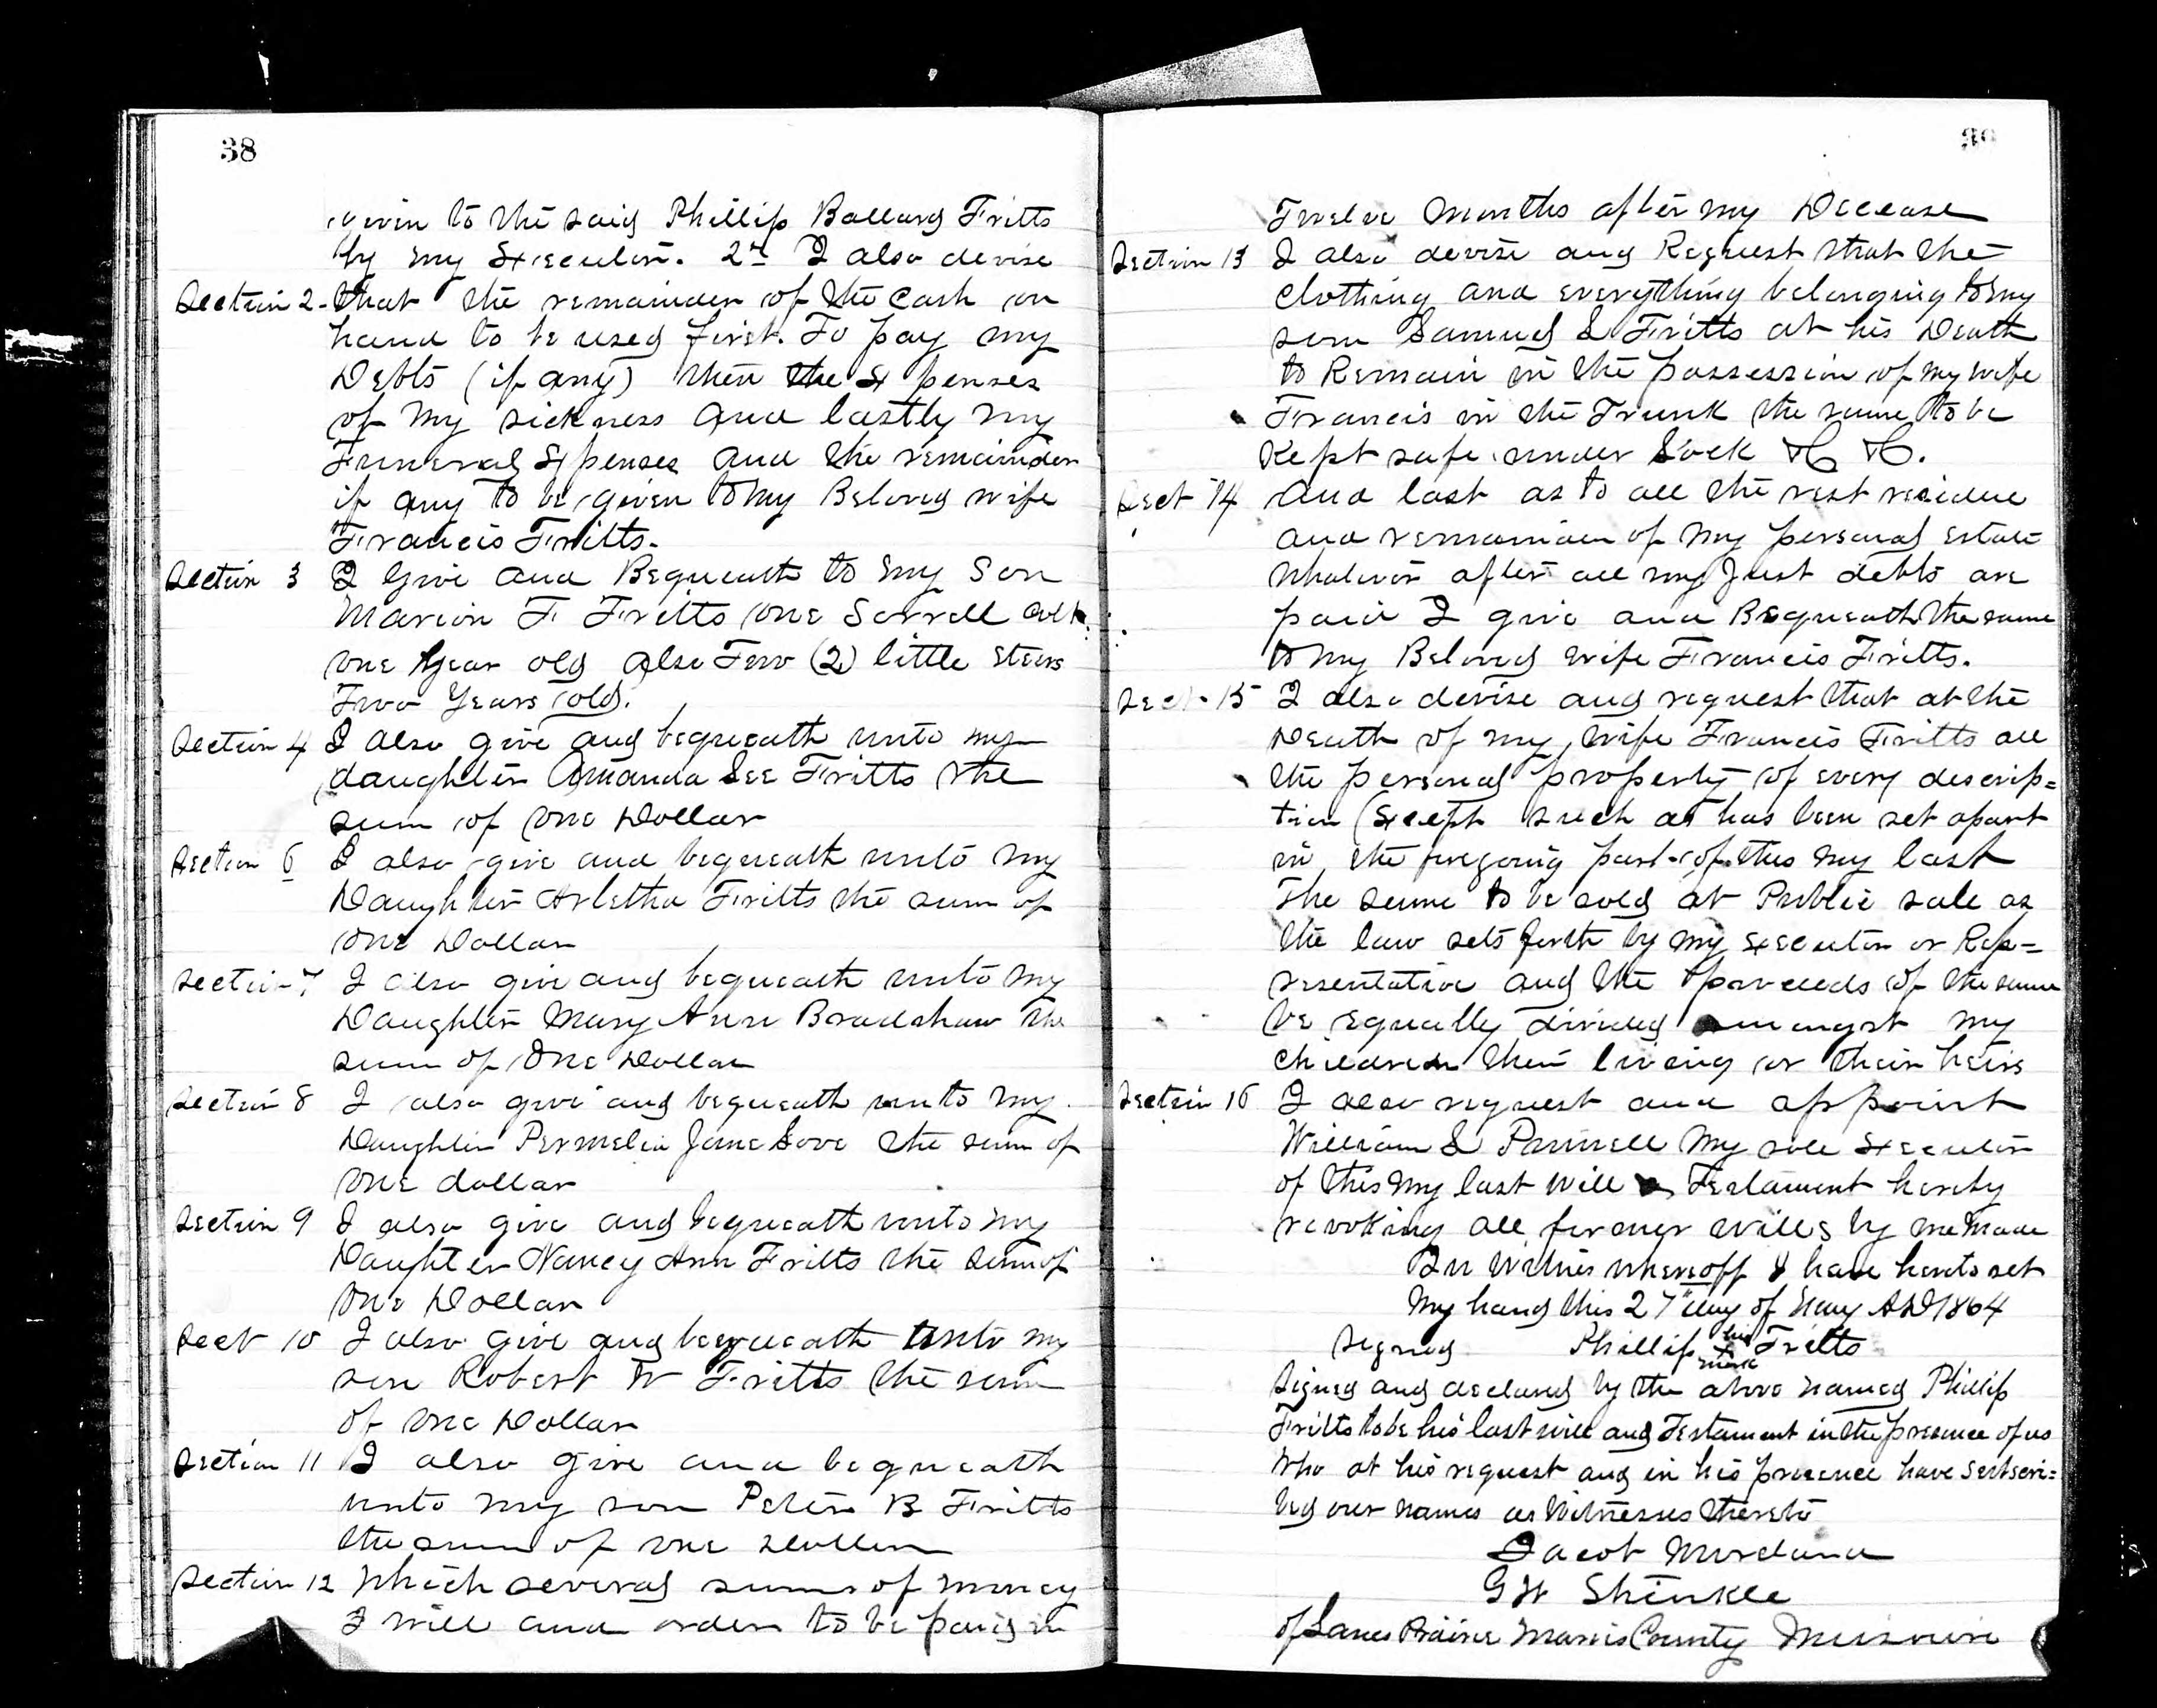 38
given to the said Phillip Ballard Fritts
by my Executor. 2nd I also devise
Section 2. that the remainder of the cash on
hand to be used first. To pay my
Debts (if any) then the Expenses
of my sickness and lastly my
Funeral Expenses and the remainder
if any to be given to my Beloved wife
Francis Fritts.
Section 3 I Give and Bequeath to my Son
Marion F Fritts one Sorrell colt
one year old also Two (2) little steers
Two Years old.
Section 4 I also give and bequeath unto my
daughter Amanda Lee Fritts the
sum of One Dollar
Section 6 I also give and bequeath unto my
Daughter Arletha Fritts the sum of
One Dollar
Section 7 I also give and bequeath unto my
Daughter Mary Ann Bradshaw the
sum of One Dollar
Section 8 I also give and bequeath unto my
Daughter Permelia Jane Love the sum of
one dollar
Section 9 I also give and bequeath unto my
Daughter Nancy Ann Fritts the sum of
One Dollar
Sect 10 I also give and bequeath unto my
son Robert W Fritts the sum
of One Dollar
Section 11 I also give and bequeath
unto my son Peter B Fritts
the sum of one dollar
Section 12 Which several sums of money
I will and order to be paid in
39
Twelve Months after my Decease
Section 13 I also devise and Request that the
clothing and everything belonging to my
son Samuel L Fritts at his Death
to Remain in the possession of my wife
Francis in the Trunk the same to be
Kept safe under Lock &c &c.
Sect 14 And last as to all the rest residue
and remainder of my personal estate
whatever after all my Just debts are
paid I give and Bequeath the same
to my Beloved wife Francis Fritts.
Sect. 15 I also devise and request that at the
Death of my wife Francis Fritts all
the personal property of every descrip=
tion (Except such as has been set apart
in the foregoing part of this my last
The same to be sold at Public sale as
the law sets forth by my Executor or Rep=
resentative and the proceeds of the same
be equally divided amongst my
children then living or their heirs
Section 16 I also request and appoint
William L Pinnell my sole Executor
of this my last will & Testament hereby
revoking all former wills by me made
In Witness whereoff I have hereto set
My hand this 27th day of May AD 1864
Signed Phillip his + mark Fritts
Signed and declared by the above named Phillip
Fritts to be his last will and Testament in the presence of us
who at his request and in his presence have subscri=
bed our names as Witnesses thereto
Jacob
G W Shinkle
of Lanes Prairie Maries County Missouri